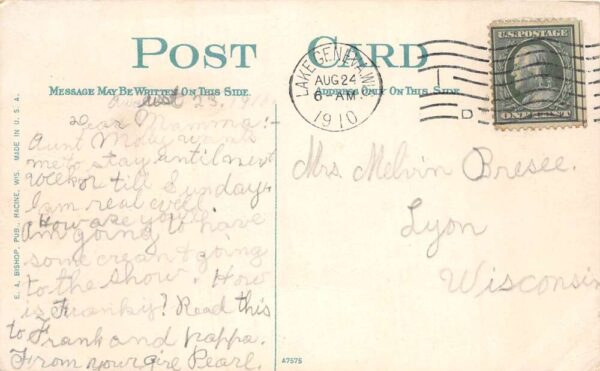 POST CARD
MESSAGE MAY BE WRITTEN ON THIS SIDE.
ADDRESS ONLY ON THIS SIDE
LAKE GENEVA, WIS.
AUG 24
6-AM.
1910
D
U.S. POSTAGE
ONE CENT
August 23, 191
Dear Mamma:-
Aunt
me to stay until next
week or till Sunday.
I am real well.
How are you?
Am going to have
some cream & going
to the show. How
is Franky? Read this
to Frank and pappa.
From your girl Pearl.
Mrs. Melvin Bresee.
Lyon
Wisconsin
E. A. BISHOP, PUB., RACINE, WIS. MADE IN U.S.A.
A7575